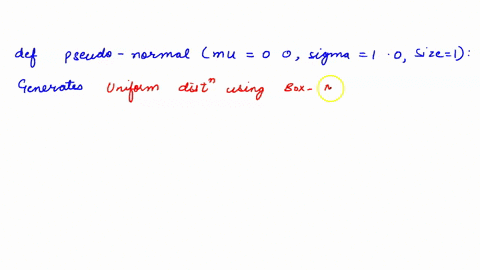 def pseudo-normal (mu = 0 0, sigma = 1 · 0, size=1):
Generates Uniform distⁿ using Box-